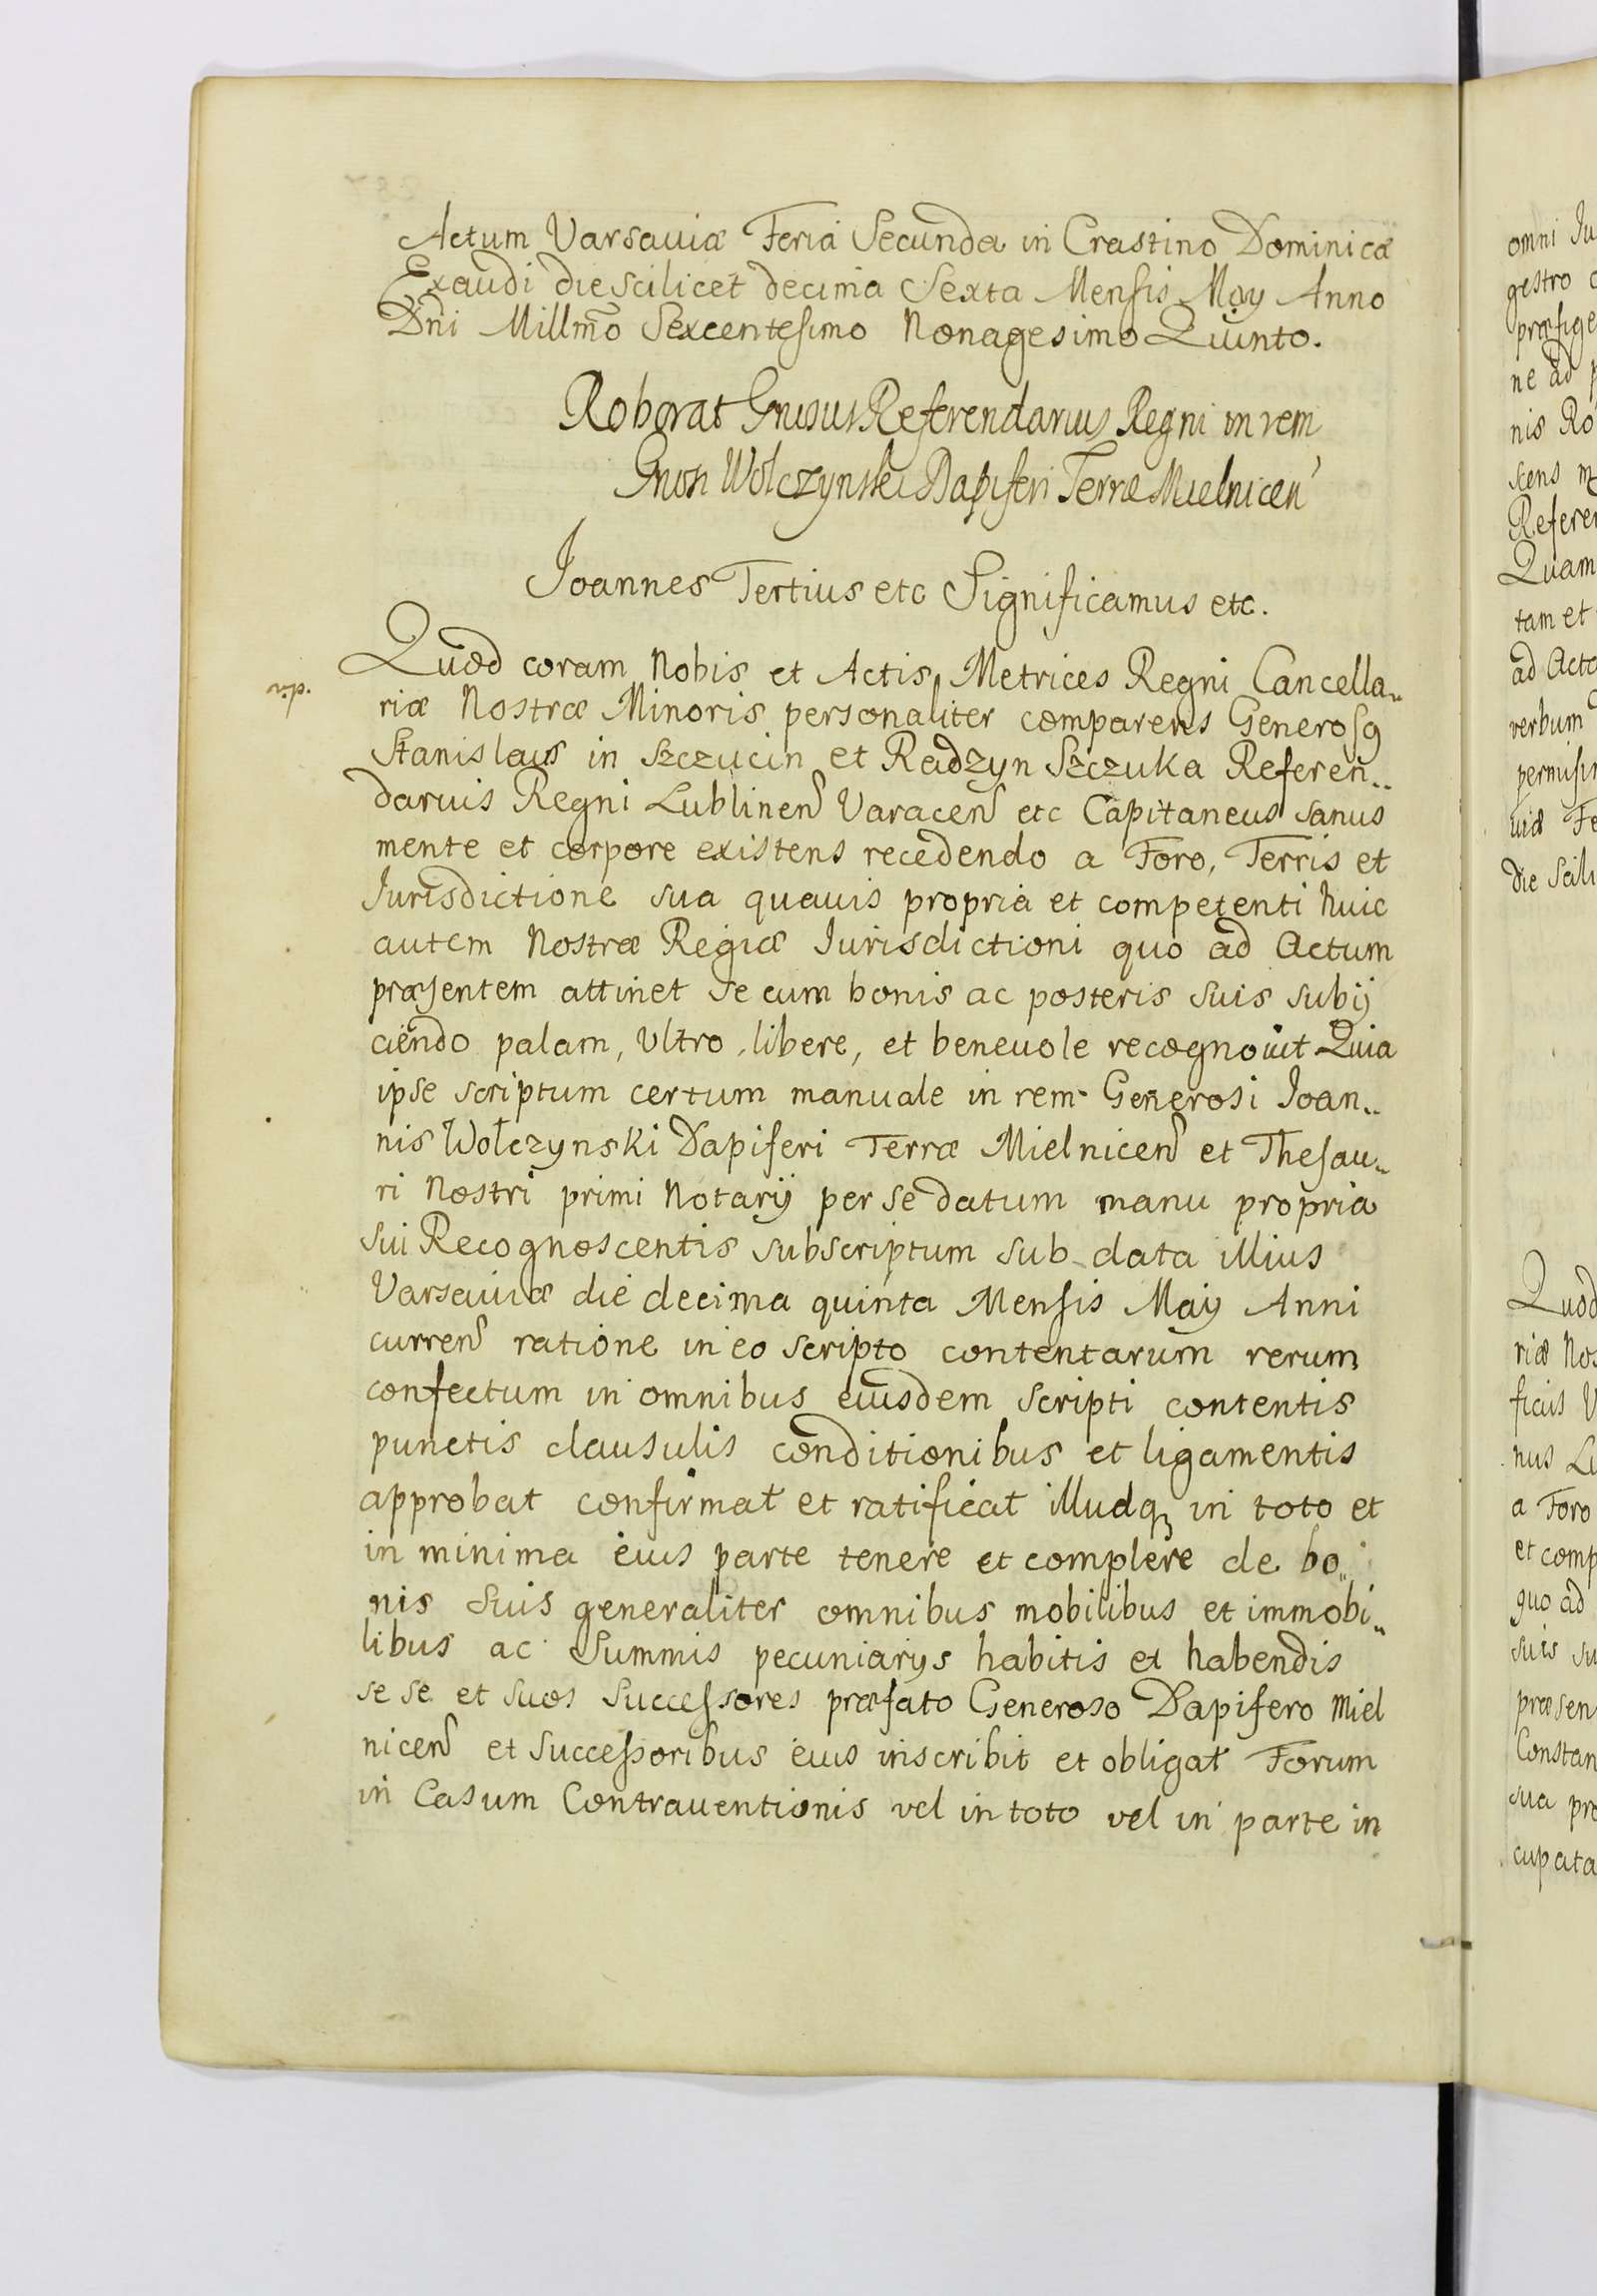 Actum Varsaviæ Feria Secunda in Crastino Dominicæ
Exaudi die scilicet decima Sexta Mensis May Anno
Dn̄i Millm̄o Sexcentesimo Nonagesimo Quinto.
Roborat Gnosus Referendarius Regni in rem
Gnosi Wolczynski Dapiferi Terræ Mielnicen
Joannes Tertius etc Significamus etc.
Quod coram Nobis et Actis Metrices Regni Cancella„
riæ Nostræ Minoris personaliter comparens Generosq
Stanislaus in Szczucin et Radzyn Szczuka Referen„
darius Regni Lublinen Varacen etc Capitaneus sanus
mente et corpore existens recedendo a Foro, Terris et
Jurisdictione sua quavis propria et competenti huic
autem Nostræ Regiæ Jurisdictioni quo ad Actum
præsentem attinet se cum bonis ac posteris suis subij
ciendo palam, Vltro, libere, et benevole recognouit Quia
ipse scriptum certum manuale in rem Generosi Joan„
nis Wolczynski Dapiferi Terræ Mielnicen et Thesau„
ri Nostri primi Notarij per se datum manu propria
sui Recognoscentis subscriptum sub data illius
Varsauiæ die decima quinta Mensis Maij Anni
curren ratione in eo scripto contentarum rerum
confectum in omnibus eiusdem scripti contentis
punctis clausulis conditionibus et ligamentis
approbat confirmat et ratificat illudq in toto et
in minima eius parte tenere et complere de bo„
nis suis generaliter omnibus mobilibus et immobi„
libus ac Summis pecuniarijs habitis et habendis
se se et suos Successores præfato Generoso Dapifero Miel
nicen et Successoribus eius inscribit et obligat Forum
in Casum Contrauentionis vel in toto vel in parte in
omni Ju
gestro
præfige
ne ad p
nis Ro
scens
Referen
Quam
tam et
ad Acta
verbum
permisi
uiæ Fe
die Scili
Quod
riæ Nos
ficis V
nus Lu
a Foro
et comp
quo ad
suis su
præsen
Constan
sua pro
cupata